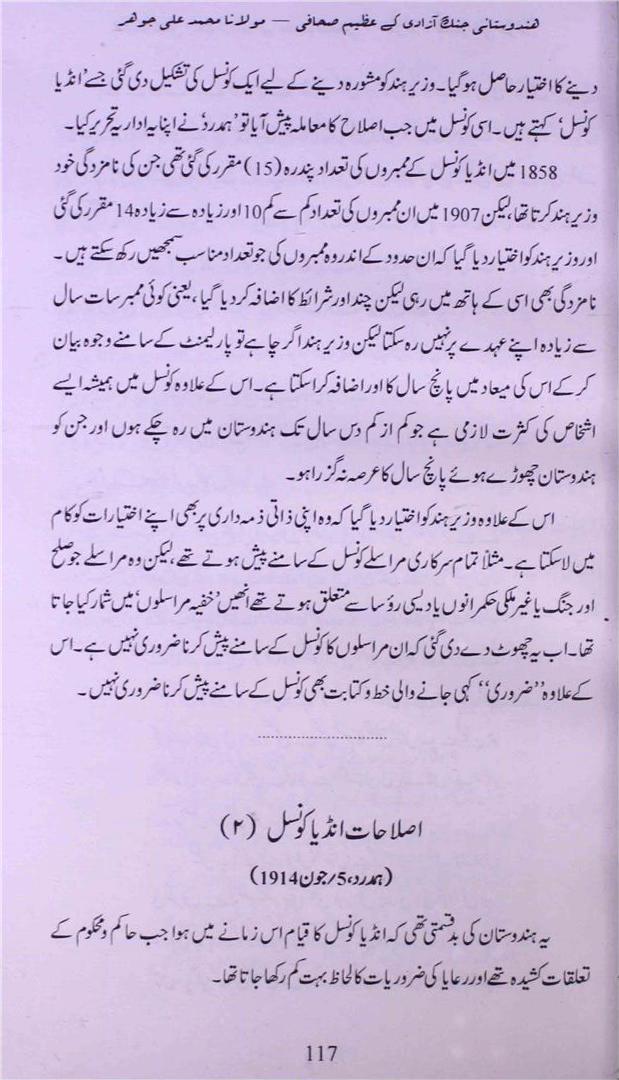 هندوستانی جنگ آزادی کے عظیم صحافی — مولانا محمد علی جوهر
دینے کا اختیار حاصل ہوگیا۔ وزیر ہند کو مشورہ دینے کے لیے ایک کونسل کی تشکیل دی گئی جسے 'انڈیا
کونسل' کہتے ہیں۔ اسی کونسل میں جب اصلاح کا معاملہ پیش آیا تو 'ہمدرد' نے اپنا یہ اداریہ تحریر کیا۔
1858 میں انڈیا کونسل کے ممبروں کی تعداد پندرہ (15) مقرر کی گئی تھی جن کی نامزدگی خود
وزیر ہند کرتا تھا، لیکن 1907 میں ان ممبروں کی تعداد کم سے کم 10 اور زیادہ سے زیادہ 14 مقرر کی گئی
اور وزیر ہند کو اختیار دیا گیا کہ ان حدود کے اندر وہ ممبروں کی جو تعداد مناسب سمجھیں رکھ سکتے ہیں۔
نامزدگی بھی اسی کے ہاتھ میں رہی لیکن چند اور شرائط کا اضافہ کردیا گیا، یعنی کوئی ممبر سات سال
سے زیادہ اپنے عہدے پر نہیں رہ سکتا لیکن وزیر ہند اگر چاہے تو پارلیمنٹ کے سامنے وجوہ بیان
کرکے اس کی میعاد میں پانچ سال کا اور اضافہ کراسکتا ہے۔ اس کے علاوہ کونسل میں ہمیشہ ایسے
اشخاص کی کثرت لازمی ہے جو کم از کم دس سال تک ہندوستان میں رہ چکے ہوں اور جن کو
ہندوستان چھوڑے ہوئے پانچ سال کا عرصہ نہ گزرا ہو۔
اس کے علاوہ وزیر ہند کو اختیار دیا گیا کہ وہ اپنی ذاتی ذمہ داری پر بھی اپنے اختیارات کو کام
میں لاسکتا ہے۔ مثلاً تمام سرکاری مراسلے کونسل کے سامنے پیش ہوتے تھے، لیکن وہ مراسلے جو صلح
اور جنگ یا غیر ملکی حکمرانوں یا دیسی رؤسا سے متعلق ہوتے تھے انھیں 'خفیہ مراسلوں' میں شمار کیا جاتا
تھا۔ اب یہ چھوٹ دے دی گئی کہ ان مراسلوں کا کونسل کے سامنے پیش کرنا ضروری نہیں ہے۔ اس
کے علاوہ ''ضروری'' کہی جانے والی خط و کتابت بھی کونسل کے سامنے پیش کرنا ضروری نہیں۔
........................................
اصلاحات انڈیا کونسل (۲)
(ہمدرد، 5/جون 1914)
یہ ہندوستان کی بدقسمتی تھی کہ انڈیا کونسل کا قیام اس زمانے میں ہوا جب حاکم و محکوم کے
تعلقات کشیدہ تھے اور رعایا کی ضروریات کا لحاظ بہت کم رکھا جاتا تھا۔
117